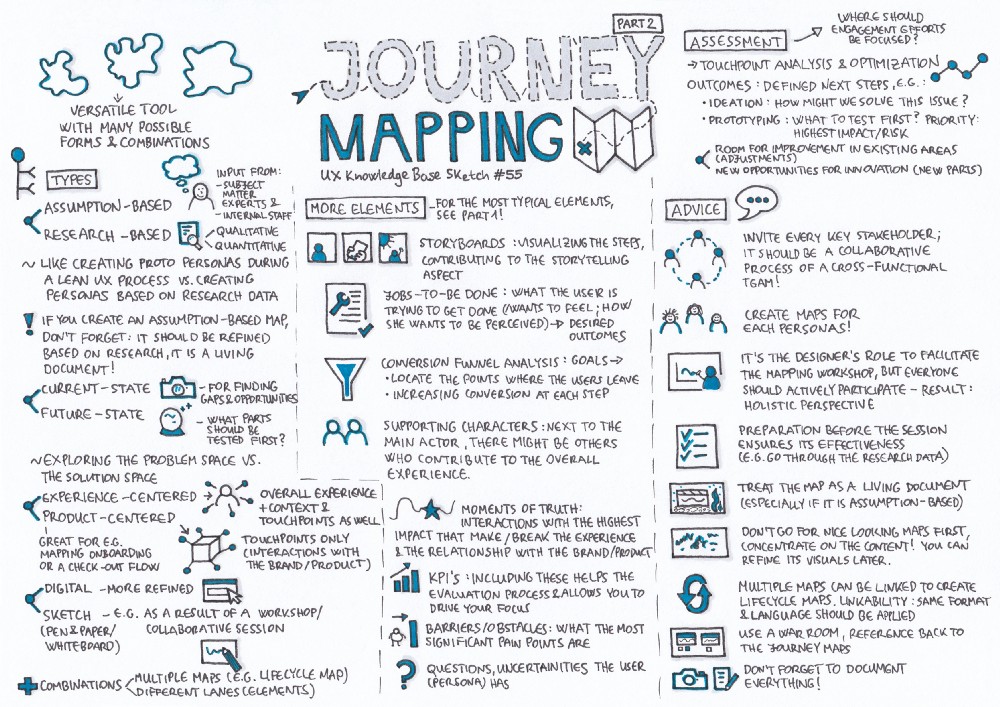 PART 2
JOURNEY
MAPPING
UX Knowledge Base Sketch #55
VERSATILE TOOL
WITH MANY POSSIBLE
FORMS & COMBINATIONS
TYPES
ASSUMPTION-BASED
INPUT FROM:
-SUBJECT
MATTER
EXPERTS &
-INTERNAL STAFF
RESEARCH-BASED
-QUALITATIVE
QUANTITATIVE
~ LIKE CREATING PROTO PERSONAS DURING
A LEAN UX PROCESS VS. CREATING
PERSONAS BASED ON RESEARCH DATA
! IF YOU CREATE AN ASSUMPTION-BASED MAP,
DON'T FORGET: IT SHOULD BE REFINED
BASED ON RESEARCH, IT IS A LIVING
DOCUMENT!
CURRENT-STATE
-FOR FINDING
GAPS & OPPORTUNITIES
FUTURE-STATE
-WHAT PARTS
SHOULD BE
TESTED FIRST?
~EXPLORING THE PROBLEM SPACE VS.
THE SOLUTION SPACE
EXPERIENCE-CENTERED
OVERALL EXPERIENCE
+ CONTEXT &
TOUCHPOINTS AS WELL
PRODUCT-CENTERED
GREAT FOR E.G.
MAPPING ONBOARDING
OR A CHECK-OUT FLOW
TOUCHPOINTS ONLY
(INTERACTIONS WITH
THE BRAND/PRODUCT)
DIGITAL -MORE REFINED
SKETCH - E.G. AS A RESULT OF A WORKSHOP/
(PEN & PAPER/ COLLABORATIVE SESSION
WHITEBOARD)
+ COMBINATIONS
MULTIPLE MAPS (E.G. LIFECYCLE MAP)
DIFFERENT LANES (ELEMENTS)
MORE ELEMENTS
-FOR THE MOST TYPICAL ELEMENTS,
SEE PART 1!
STORYBOARDS : VISUALIZING THE STEPS,
CONTRIBUTING TO THE STORYTELLING
ASPECT
JOBS-TO-BE DONE : WHAT THE USER IS
TRYING TO GET DONE (WANTS TO FEEL; HOW
SHE WANTS TO BE PERCEIVED) → DESIRED
OUTCOMES
CONVERSION FUNNEL ANALYSIS : GOALS →
• LOCATE THE POINTS WHERE THE USERS LEAVE
• INCREASING CONVERSION AT EACH STEP
SUPPORTING CHARACTERS : NEXT TO THE
MAIN ACTOR, THERE MIGHT BE OTHERS
WHO CONTRIBUTE TO THE OVERALL
EXPERIENCE.
MOMENTS OF TRUTH:
INTERACTIONS WITH THE HIGHEST
IMPACT THAT MAKE/BREAK THE EXPERIENCE
& THE RELATIONSHIP WITH THE BRAND/PRODUCT
KPI's : INCLUDING THESE HELPS THE
EVALUATION PROCESS & ALLOWS YOU TO
DRIVE YOUR FOCUS
BARRIERS/OBSTACLES: WHAT THE MOST
SIGNIFICANT PAIN POINTS ARE
? QUESTIONS, UNCERTAINITIES THE USER
(PERSONA) HAS
ASSESSMENT
WHERE SHOULD
ENGAGEMENT EFFORTS
BE FOCUSED?
→ TOUCHPOINT ANALYSIS & OPTIMIZATION
OUTCOMES : DEFINED NEXT STEPS, E.G.:
• IDEATION : HOW MIGHT WE SOLVE THIS ISSUE?
• PROTOTYPING : WHAT TO TEST FIRST? PRIORITY:
HIGHEST IMPACT/RISK
ROOM FOR IMPROVEMENT IN EXISTING AREAS
(ADJUSTMENTS)
NEW OPPORTUNITIES FOR INNOVATION (NEW PARTS)
ADVICE
INVITE EVERY KEY STAKEHOLDER;
IT SHOULD BE A COLLABORATIVE
PROCESS OF A CROSS-FUNCTIONAL
TEAM!
CREATE MAPS FOR
EACH PERSONAS!
IT'S THE DESIGNER'S ROLE TO FACILITATE
THE MAPPING WORKSHOP, BUT EVERYONE
SHOULD ACTIVELY PARTICIPATE - RESULT:
HOLISTIC PERSPECTIVE
PREPARATION BEFORE THE SESSION
ENSURES ITS EFFECTIVENESS
(E.G. GO THROUGH THE RESEARCH DATA)
TREAT THE MAP AS A LIVING DOCUMENT
(ESPECIALLY IF IT IS ASSUMPTION-BASED)
DON'T GO FOR NICE LOOKING MAPS FIRST,
CONCENTRATE ON THE CONTENT! YOU CAN
REFINE ITS VISUALS LATER.
MULTIPLE MAPS CAN BE LINKED TO CREATE
LIFECYCLE MAPS. LINKABILITY : SAME FORMAT
& LANGUAGE SHOULD BE APPLIED
USE A WAR ROOM, REFERENCE BACK TO
THE JOURNEY MAPS
DON'T FORGET TO DOCUMENT
EVERYTHING!